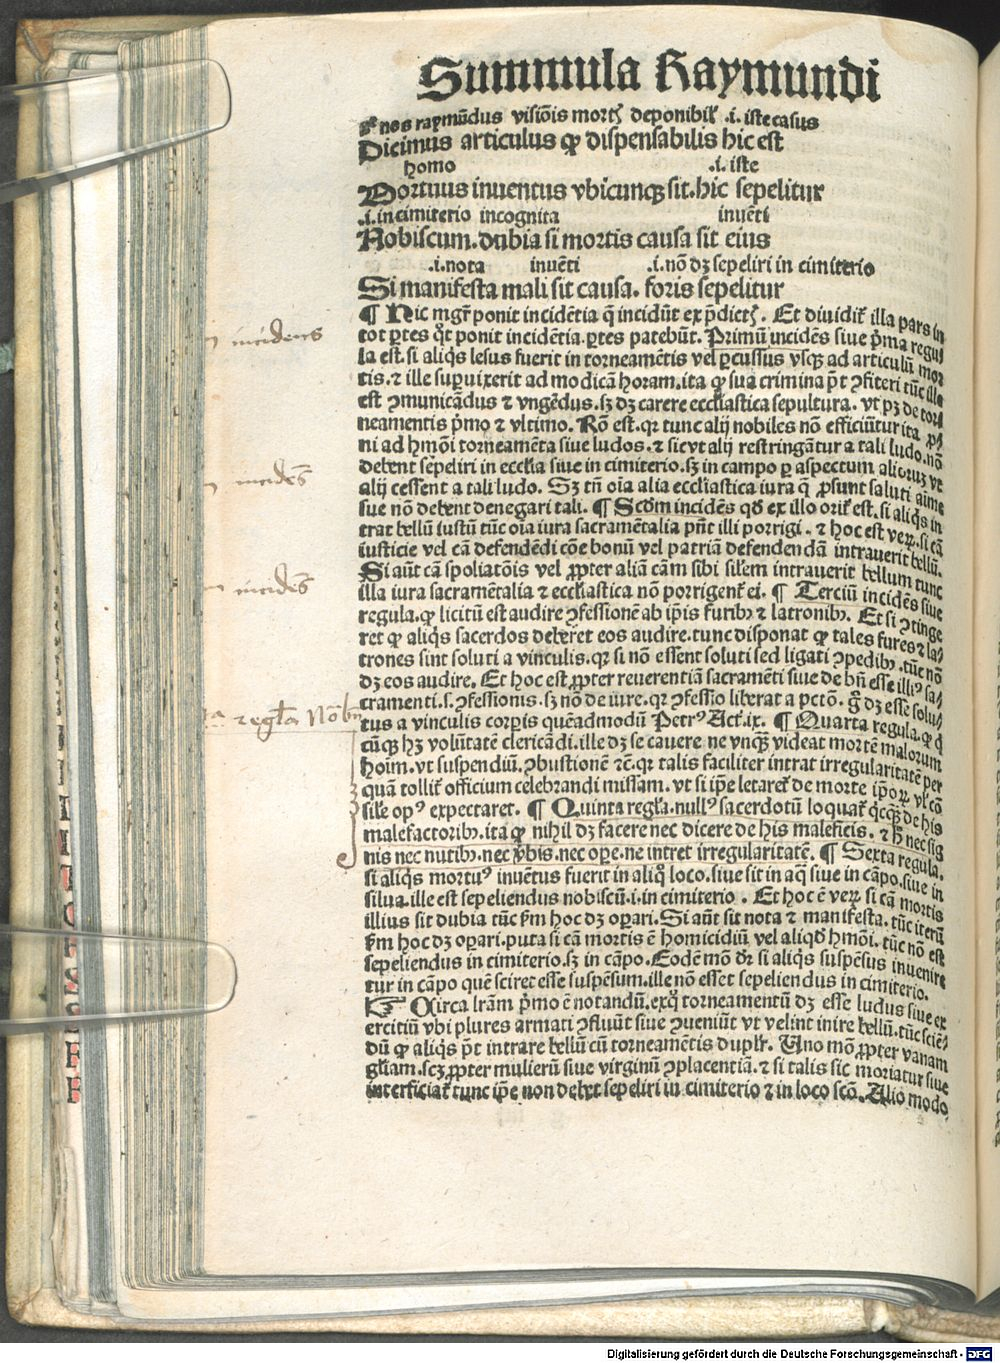 Summula Raymundi
nos raymūdus visiōis mortꝫ deponibilꝭ .i. iste casus
Dicimus articulus ꝙ dispensabilis hic est
homo .i. iste
Mortuus inuentus vbicunqꝫ sit. hic sepelitur
.i. in cimiterio incognita inuēti
Nobiscum. dubia si mortis causa sit eius
.i. nota inuēti .i. nō dꝫ sepeliri in cimiterio
Si manifesta mali sit causa. foris sepelitur
¶ Hic mgr̄ ponit incidētia q̄ incidūt ex p̄dictꝭ. Et diuidit᷑ illa pars in
tot ꝑtes q̄t ponit incidētia. ꝑtes patebūt. Primū incidēs siue p̄ma regu
la est. si aliqꝭs lesus fuerit in torneamētis vel ꝑcussus vsqꝫ ad articulū mor
tis. ⁊ ille suꝑuixerit ad modicā horam. ita ꝙ sua crimina p̄t ꝯfiteri tūc ille
est ꝯmunicādus ⁊ vngēdus. sꝫ dꝫ carere ecclīastica sepultura. vt pꝫ de tor
neamentis p̄mo ⁊ vltimo. Rō est. qꝛ tunc alij nobiles nō efficiūtur ita ꝓ
ni ad hmōi torneamēta siue ludos. ⁊ sicut alij restringātur a tali ludo. nō
debent sepeliri in ecclīa siue in cimiterio. sꝫ in campo ꝑ aspectum alioruꝫ vt
alij cessent a tali ludo. Sꝫ tn̄ oīa alia ecclīastica iura q̄ ꝓsunt saluti aīme
sue nō debent denegari tali. ¶ Scdm̄ incidēs qd̓ ex illo orit᷑ est. si aliqꝭs in
trat bellū iustū tūc oīa iura sacramētalia pn̄t illi porrigi. ⁊ hoc est veꝝ. si cā
iusticie vel cā defendēdi cōe bonū vel patriā defendendā intrauerit bellū.
Si aūt cā spoliatōis vel ꝓpter aliā cām sibi sil̓em intrauerit bellum tunc
illa iura sacramētalia ⁊ ecclīastica nō porrigent᷑ ei. ¶ Terciū incidēs siue
regula. ꝙ licitū est audire ꝯfessionē ab ip̄is furibꝫ ⁊ latronibꝫ. Et si ꝯtinge
ret ꝙ aliqꝭs sacerdos deberet eos audire. tunc disponat ꝙ tales fures ⁊ la
trones sint soluti a vinculis. qꝛ si nō essent soluti sed ligati ꝯpedibꝫ. tūc nō
dꝫ eos audire. Et hoc est ꝓpter reuerentiā sacramēti siue de bn̄ esse illiꝰ sa
cramenti. s. ꝯfessionis. sꝫ nō de iure. qꝛ ꝯfessio liberat a pctō. g̊ dꝫ esse solu
tus a vinculis corꝑis quēadmodū Petrꝰ Act̓. ix. ¶ Quarta regula. ꝙ q̄
cūqꝫ hꝫ volūtatē clericādi. ille dꝫ se cauere ne vnqꝫ videat mortē malorum
hoīm. vt suspendiū. ꝯbustionē ⁊c̄. qꝛ talis faciliter intrat irregularitatē per
quā tollit᷑ officium celebrandi missam. vt si ip̄e letaret᷑ de morte ip̄oꝝ vl̓ cō
sil̓e opꝰ expectaret. ¶ Quinta regl̓a. nullꝰ sacerdotū loquat᷑ q̄cqꝫ de his
malefactoribꝫ. ita ꝙ nihil dꝫ facere nec dicere de his maleficis. ⁊ h̄ nec sig
nis nec nutibꝫ. nec v̓bis. nec oꝑe. ne intret irregularitatē. ¶ Sexta regula.
si aliqꝭs mortuꝰ inuētus fuerit in aliq̊ loco. siue sit in aq̄ siue in cāpo. siue in
silua. ille est sepeliendus nobiscū. i. in cimiterio . Et hoc ē veꝝ si cā mortis
illius sit dubia tūc fm̄ hoc dꝫ oꝑari. Si aūt sit nota ⁊ manifesta. tūc iterū
fm̄ hoc dꝫ oꝑari. puta si cā mortis ē homicidiū vel aliqd̓ hmōi. tūc nō est
sepeliendus in cimiterio. sꝫ in cāpo. Eodē mō dr̄ si aliqꝭs suspēsus inuenire
tur in cāpo quē sciret esse suspēsum. ille nō esset sepeliendus in cimiterio.
☞ Circa lr̄am p̄mo ē notandū. ex q̊ torneamentū dꝫ esse ludus siue ex
ercitiū vbi plures armati ꝯfluūt siue ꝯueniūt vt velint inire bellū. tūc sciē
dū ꝙ aliqꝭs p̄t intrare bellū cū torneamētis duplr̄. Uno mō ꝓpter vanam
gl̓iam. scꝫ ꝓpter mulierū siue virginū ꝯplacentiā. ⁊ si talis sic moriatur siue
interficiat᷑ tunc ip̄e non debet sepeliri in cimiterio ⁊ in loco scō. Alio modo
incidens
incidēs
incidēs
regl̓a Nō bn̄
Digitalisierung gefördert durch die Deutsche Forschungsgemeinschaft - DFG